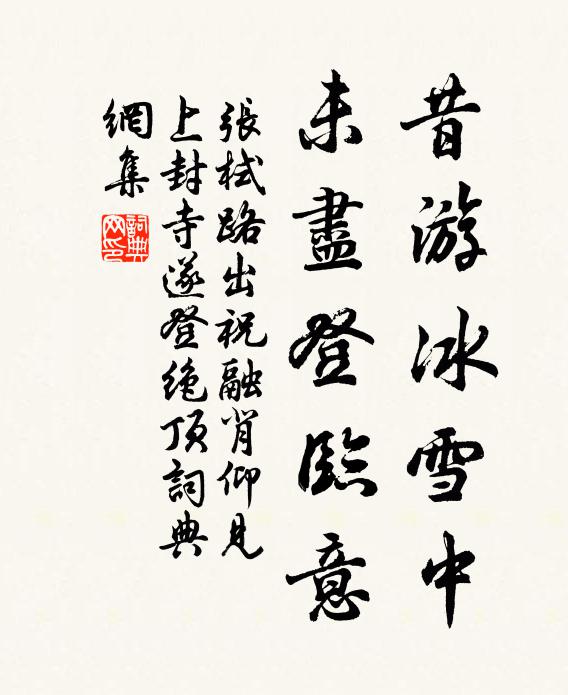 昔游冰雪中
未盡登臨意
張栻路出祝融肖仰見
上封寺遂登绝頂詞典
網集
詞典网印